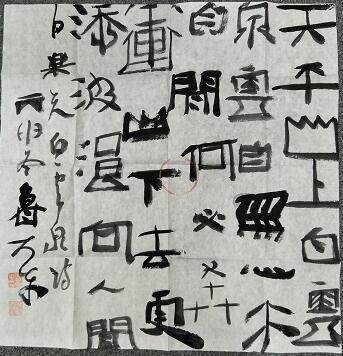 天平山上白雲
泉雲自無心水
自閑何必奔
衝山下去更
添波浪向人間
白樂天白雲泉詩
丙申冬魯